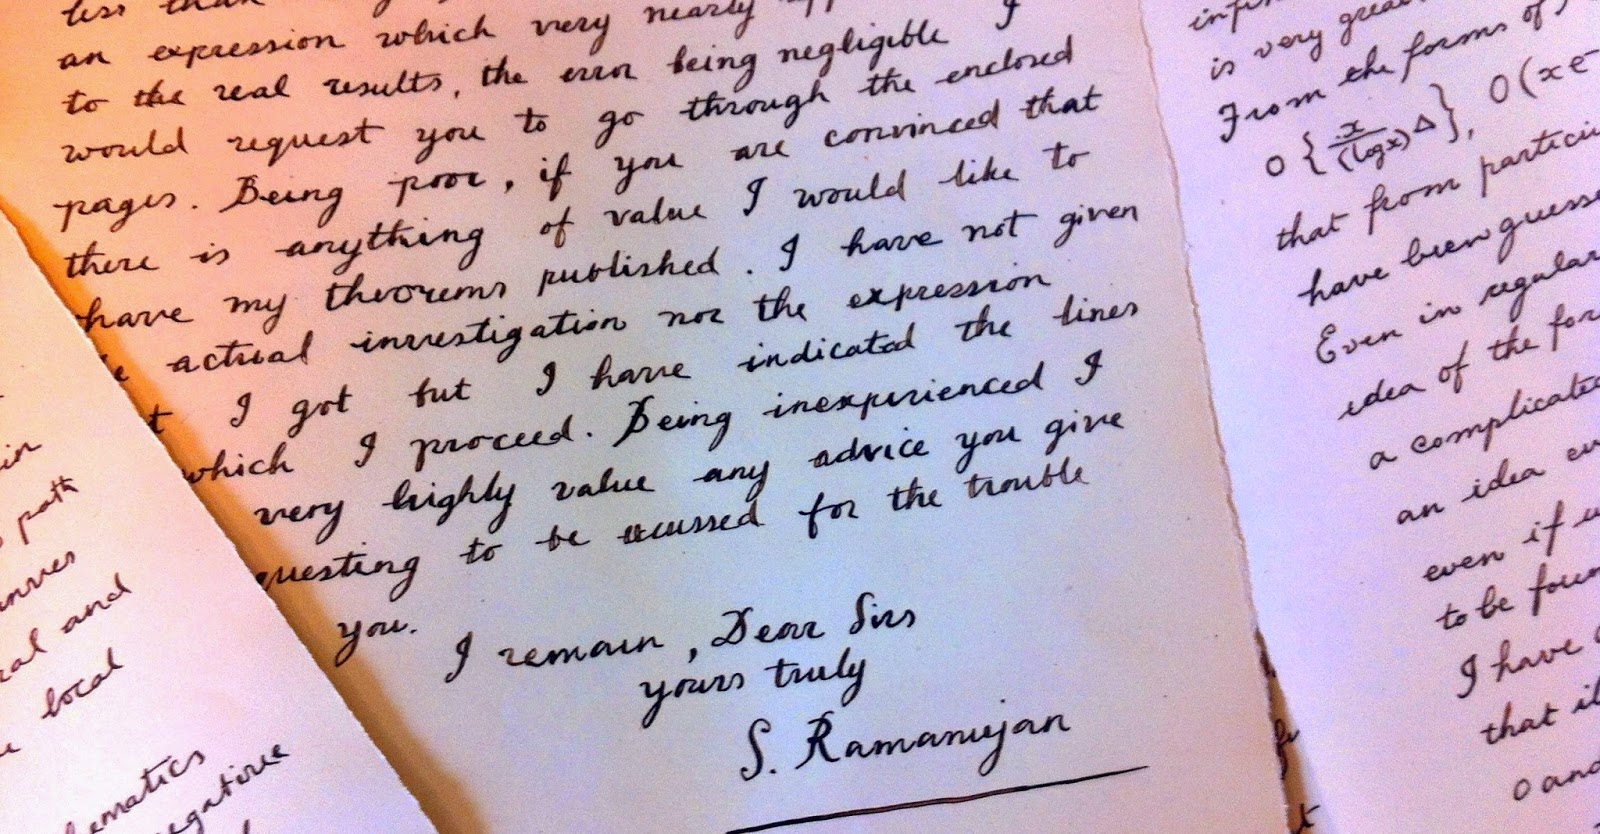 less than
an expression which very nearly
to the real results, the error being negligible I
would request you to go through the enclosed
pages. Being poor, if you are convinced that
there is anything of value I would like to
have my theorems published. I have not given
actual investigation nor the expression
I got but I have indicated the lines
which I proceed. Being inexperienced I
very highly value any advice you give
questing to be excussed for the trouble
you.
I remain, Dear Sirs
yours truly
S. Ramanujan
in
path
ral and
local
hematics
negative
is very great
From the forms of
O { x/(log x)^Δ }, O(xe-
that from particu
have been guesse
Even in regular
idea of the for
a complicate
an idea
even if
to be foun
I have
that il
0 and